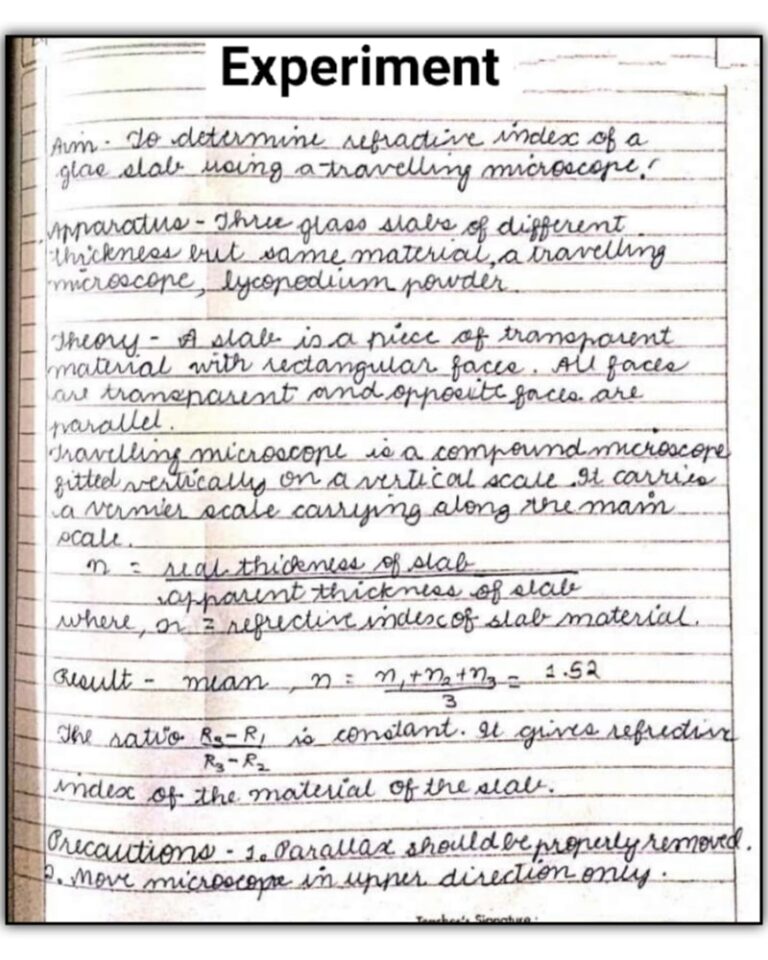 Experiment
Aim - To determine refractive index of a
glae slab using a travelling microscope.
Apparatus - Three glass slabs of different
thickness but same material, a travelling
microscope, lycopodium powder.
Theory - A slab is a piece of transparent
material with rectangular faces. All faces
are transparent and opposite faces are
parallel.
Travelling microscope is a compound microscope
fitted vertically on a vertical scale. It carries
a vernier scale carrying along the main
scale.
n = real thickness of slab
apparent thickness of slab
where, n = refrective index of slab material.
Result - mean, n = n₁+n₂+n₃ = 1.52
3
The ratio R₃-R₁ is constant. It gives refrective
R₃-R₂
index of the material of the slab.
Precautions - 1. Parallax should be properly removed.
2. Move microscope in upper direction only.
Teacher's Signature: